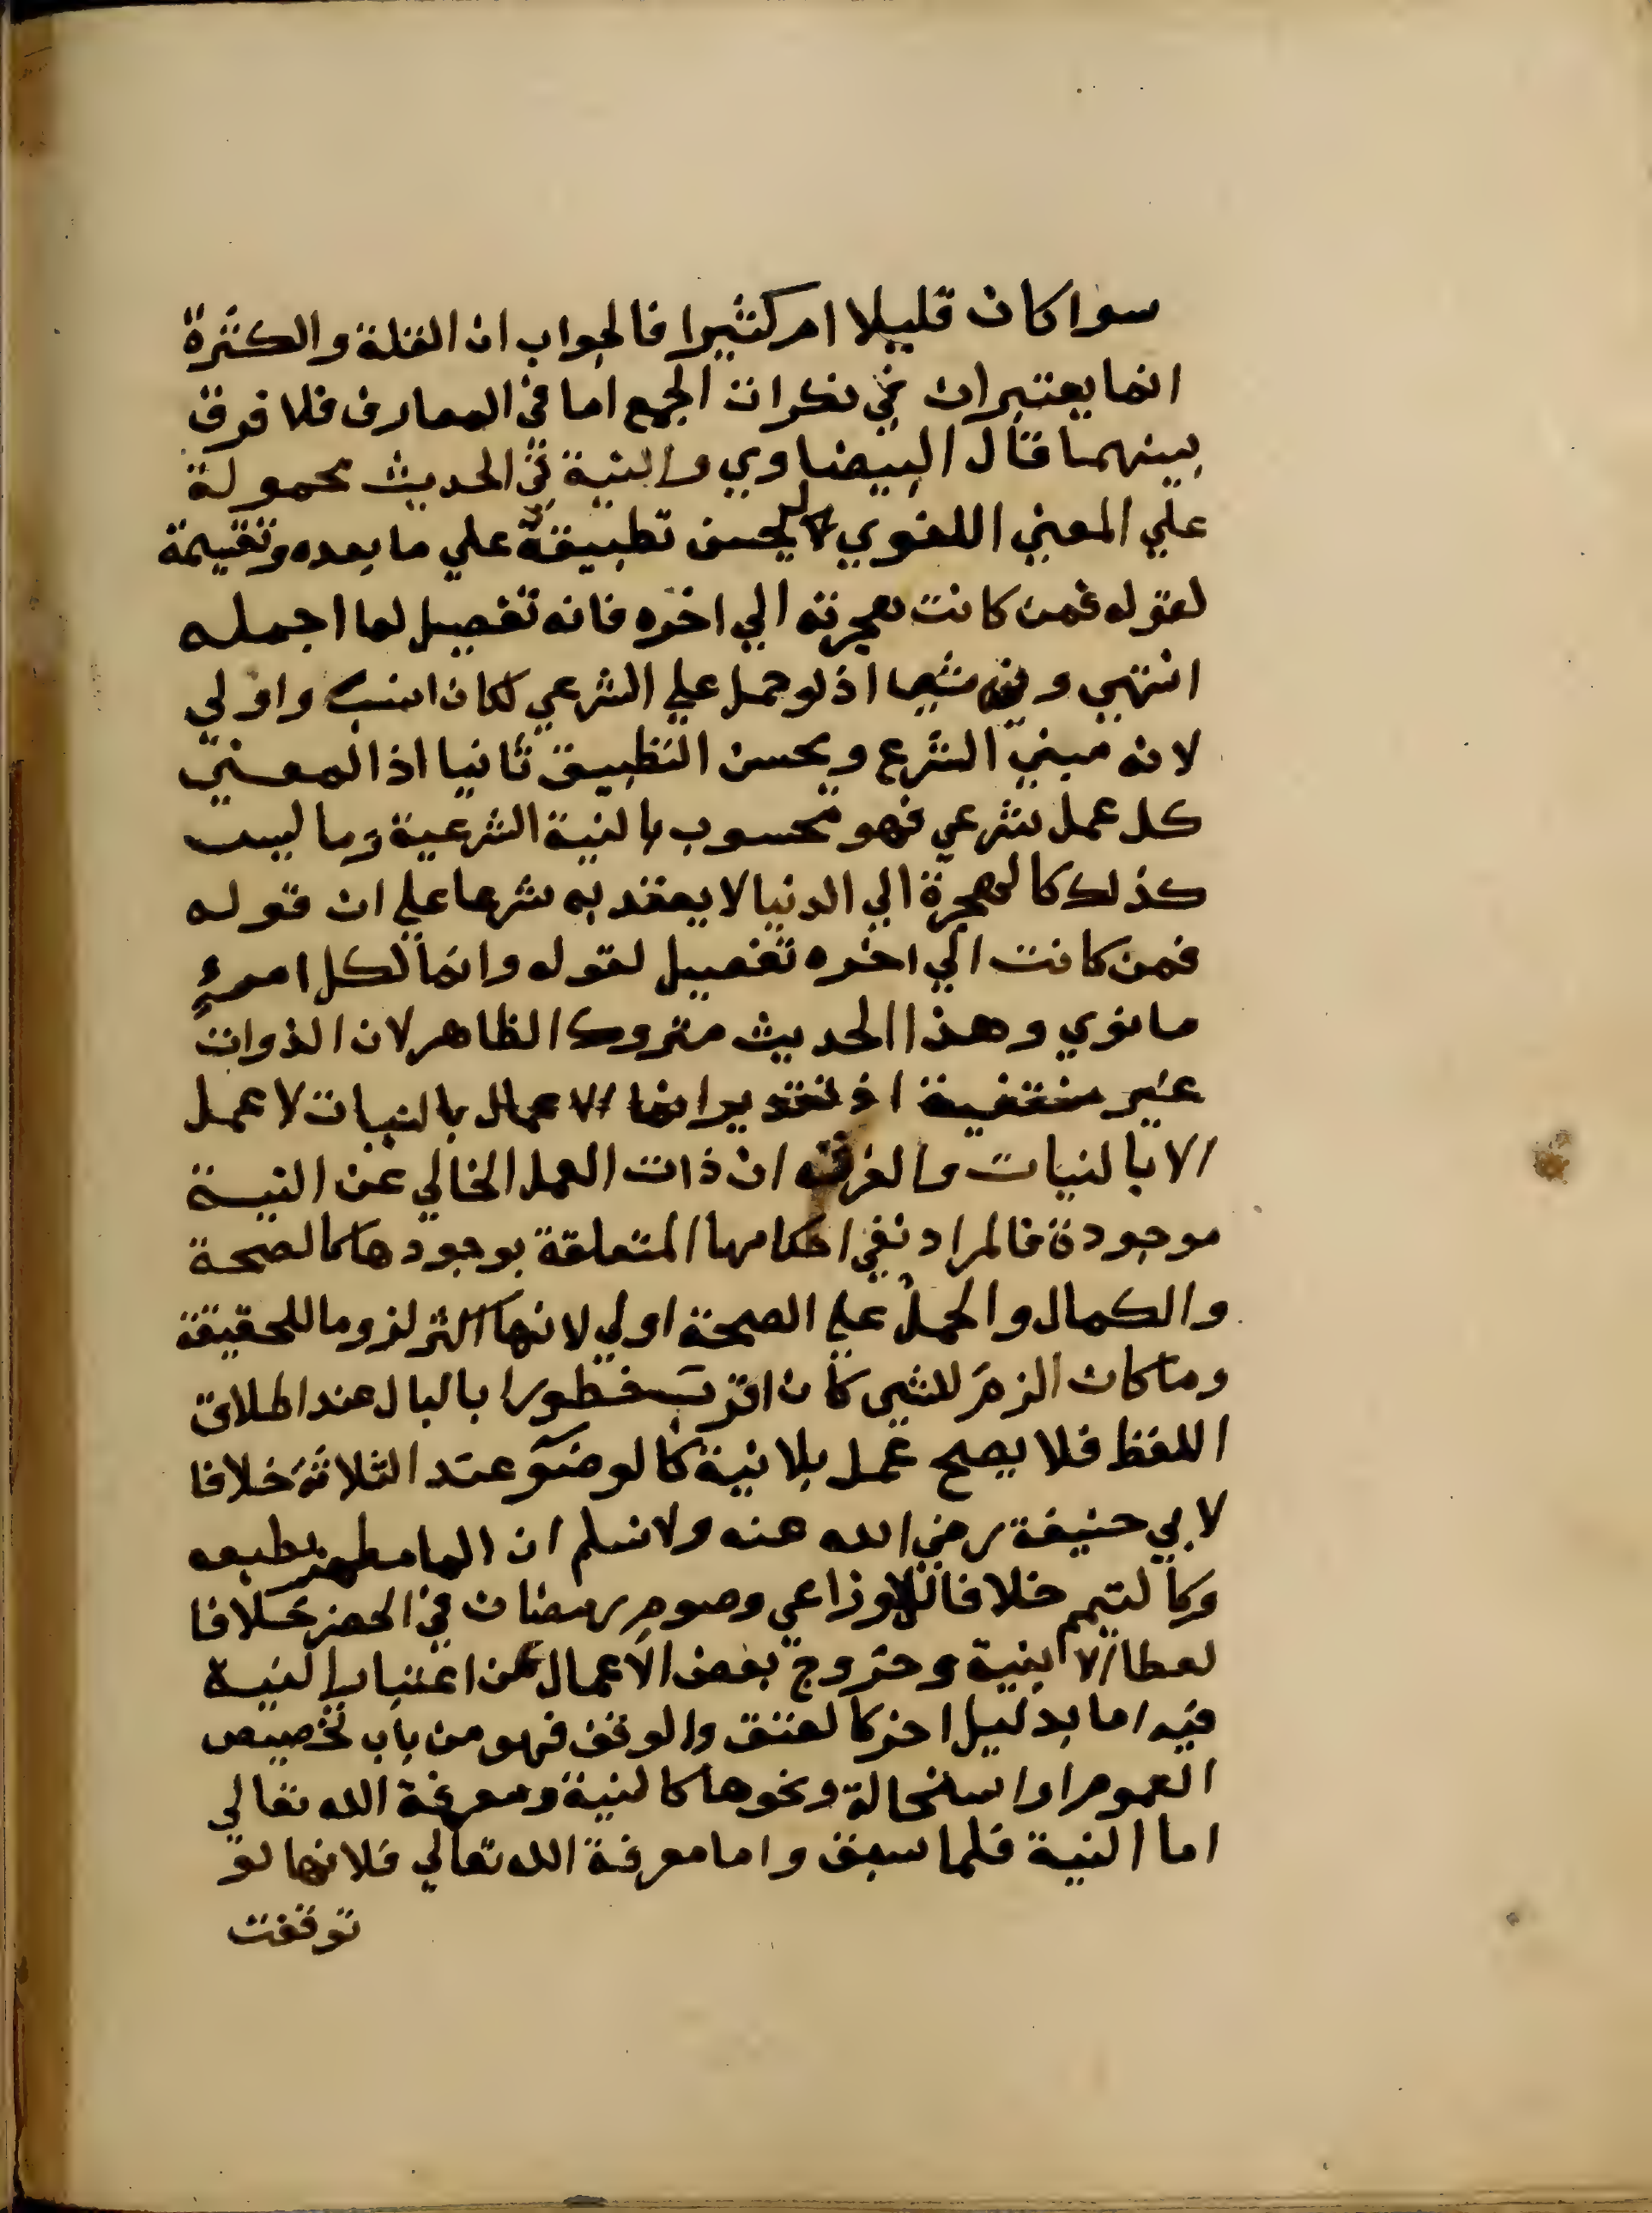 سوا كان قليلا ام كثيرا فالجواب ان القلة والكثرة
انما يعتبران في نكرات الجمع اما في المعارف فلا فرق
بينهما قال البيضاوي والنية في الحديث محمولة
علي المعني اللغوي ليحسن تطبيقه علي ما بعده وتقسيمه
لقوله فمن كانت هجرته الي اخره فانه تفصيل لما اجمله
انتهي وفيه شي اذ لو حمل علي الشرعي لكان انسب واولي
لانه مبني الشرع ويحسن التطبيق ثانيا اذ المعني
كل عمل شرعي فهو محسوب بالنية الشرعية وما ليس
كذلك كالهجرة الي الدنيا لا يعتد به شرعا علي ان قوله
فمن كانت الي اخره تفصيل لقوله وانما لكل امرئ
ما نوي وهذا الحديث متروك الظاهر لان الذوات
غير منتفية اذ تقدير انما الاعمال بالنيات لا عمل
الا بالنيات والغرض ان ذات العمل الخالي عن النية
موجودة فالمراد نفي احكامها المتعلقة بوجودها كالصحة
والكمال والحمل علي الصحة اولي لانها اكثر لزوما للحقيقة
وما كان الزم للشي كان اقرب خطورا بالبال عند اطلاق
اللفظ فلا يصح عمل بلا نية كالوضو عند الثلاثة خلافا
لابي حنيفة رضي الله عنه ولا نسلم ان الما مطهر بطبعه
وكالتيمم خلافا للاوزاعي وصوم رمضان في الحضر خلافا
لعطا الا بنية وخروج بعض الاعمال عن اعتبار النية
فيه اما بدليل اخر كالعتق والوقف فهو من باب تخصيص
العموم او استحالة ونحوها كالنية ومعرفة الله تعالي
اما النية فلما سبق واما معرفة الله تعالي فلانها لو
توقفت